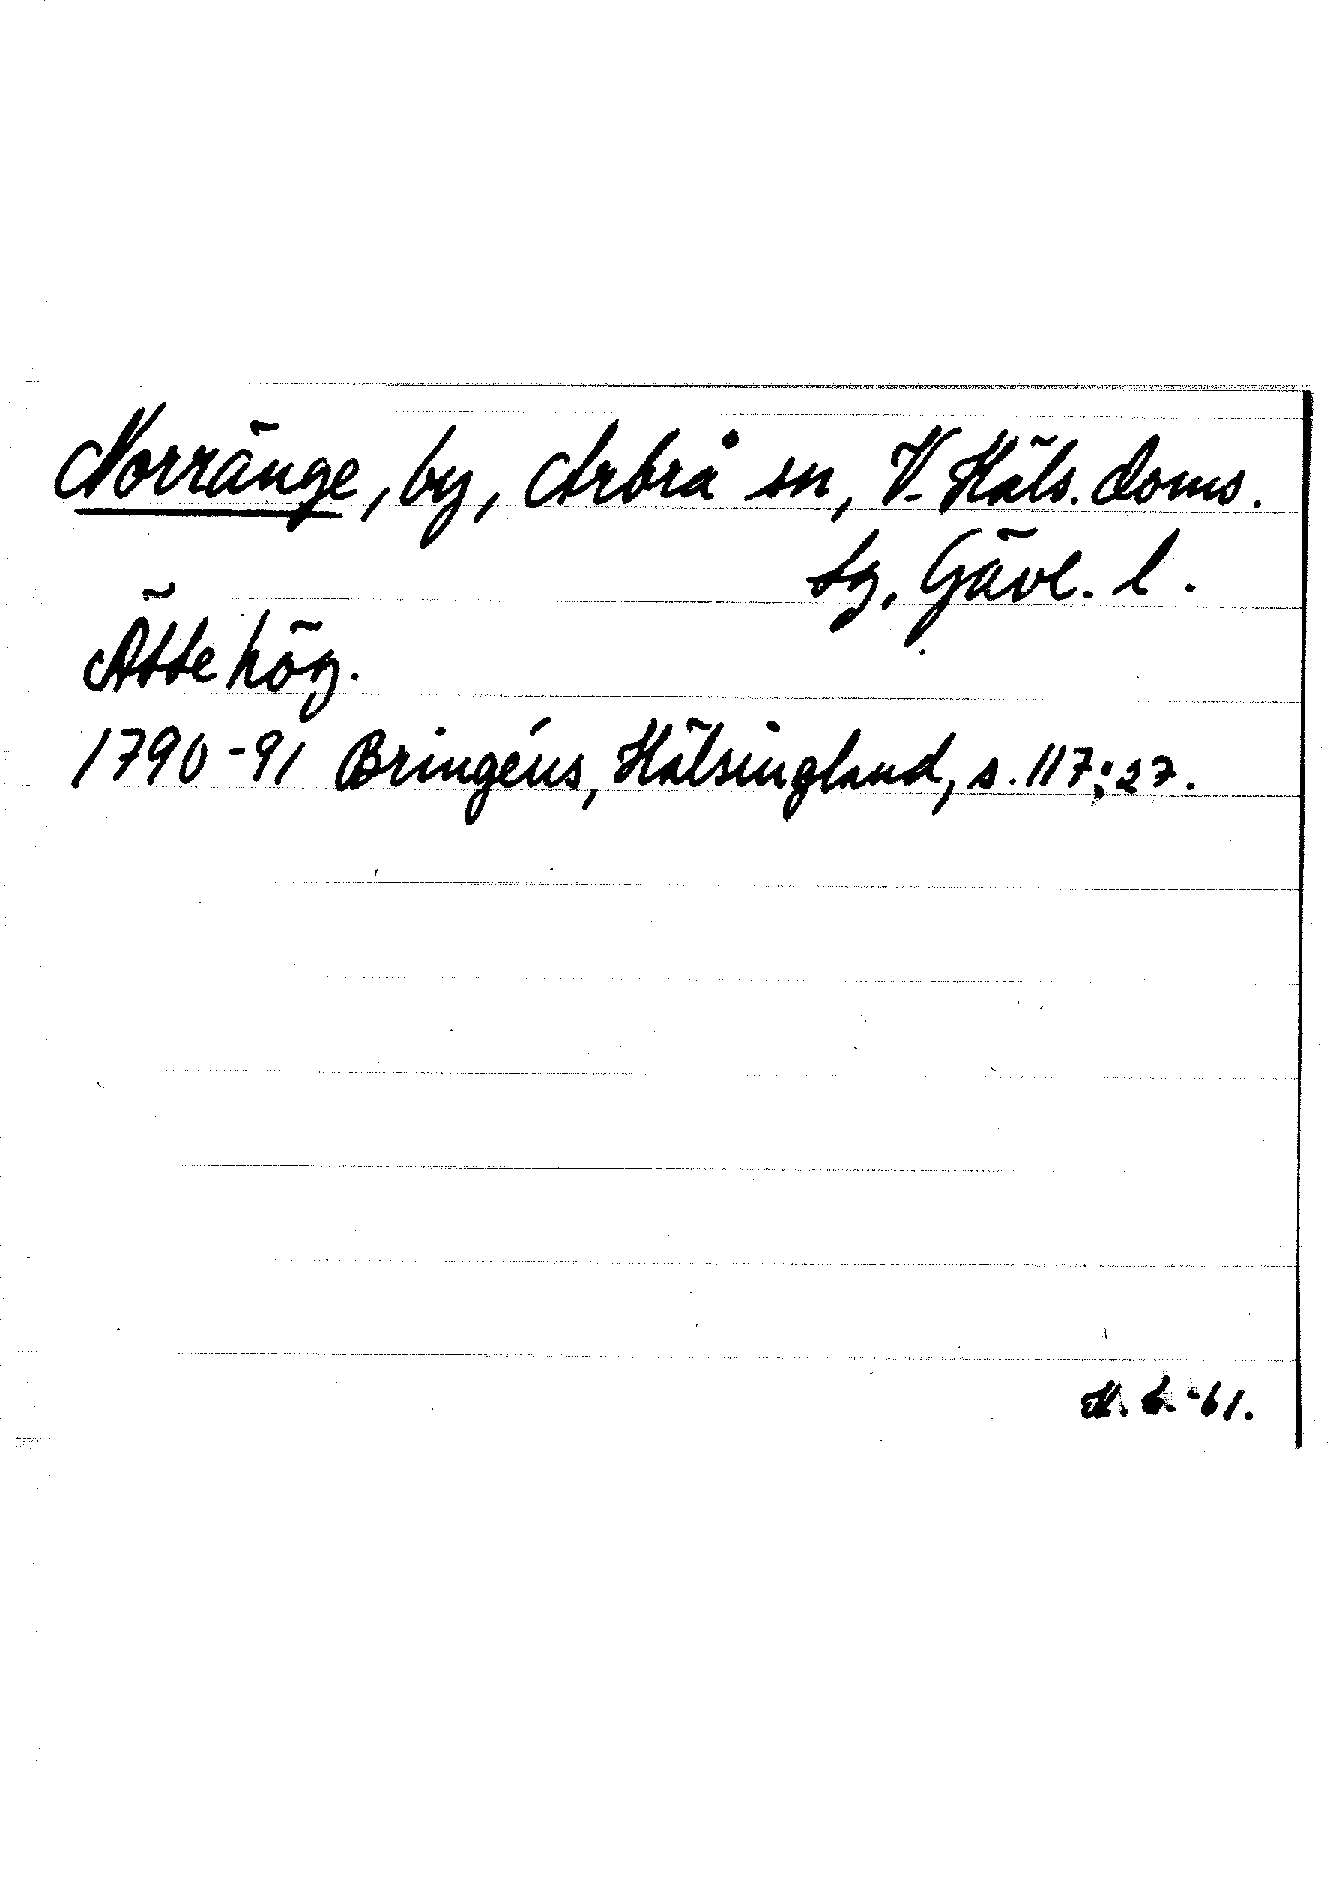 Norränge, by, Arbrå sn, V. Häls. doms.
sg, Gävl. l.
Ättehög.
1790-91 Bringéus, Hälsingland, s. 117; 27.
-61.